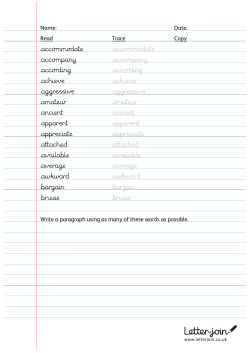 Name: Date:
Read Trace Copy
accommodate accommodate
accompany accompany
according according
achieve achieve
aggressive aggressive
amateur amateur
ancient ancient
apparent apparent
appreciate appreciate
attached attached
available available
average average
awkward awkward
bargain bargain
bruise bruise
Write a paragraph using as many of these words as possible.
Letter-join
www.letterjoin.co.uk